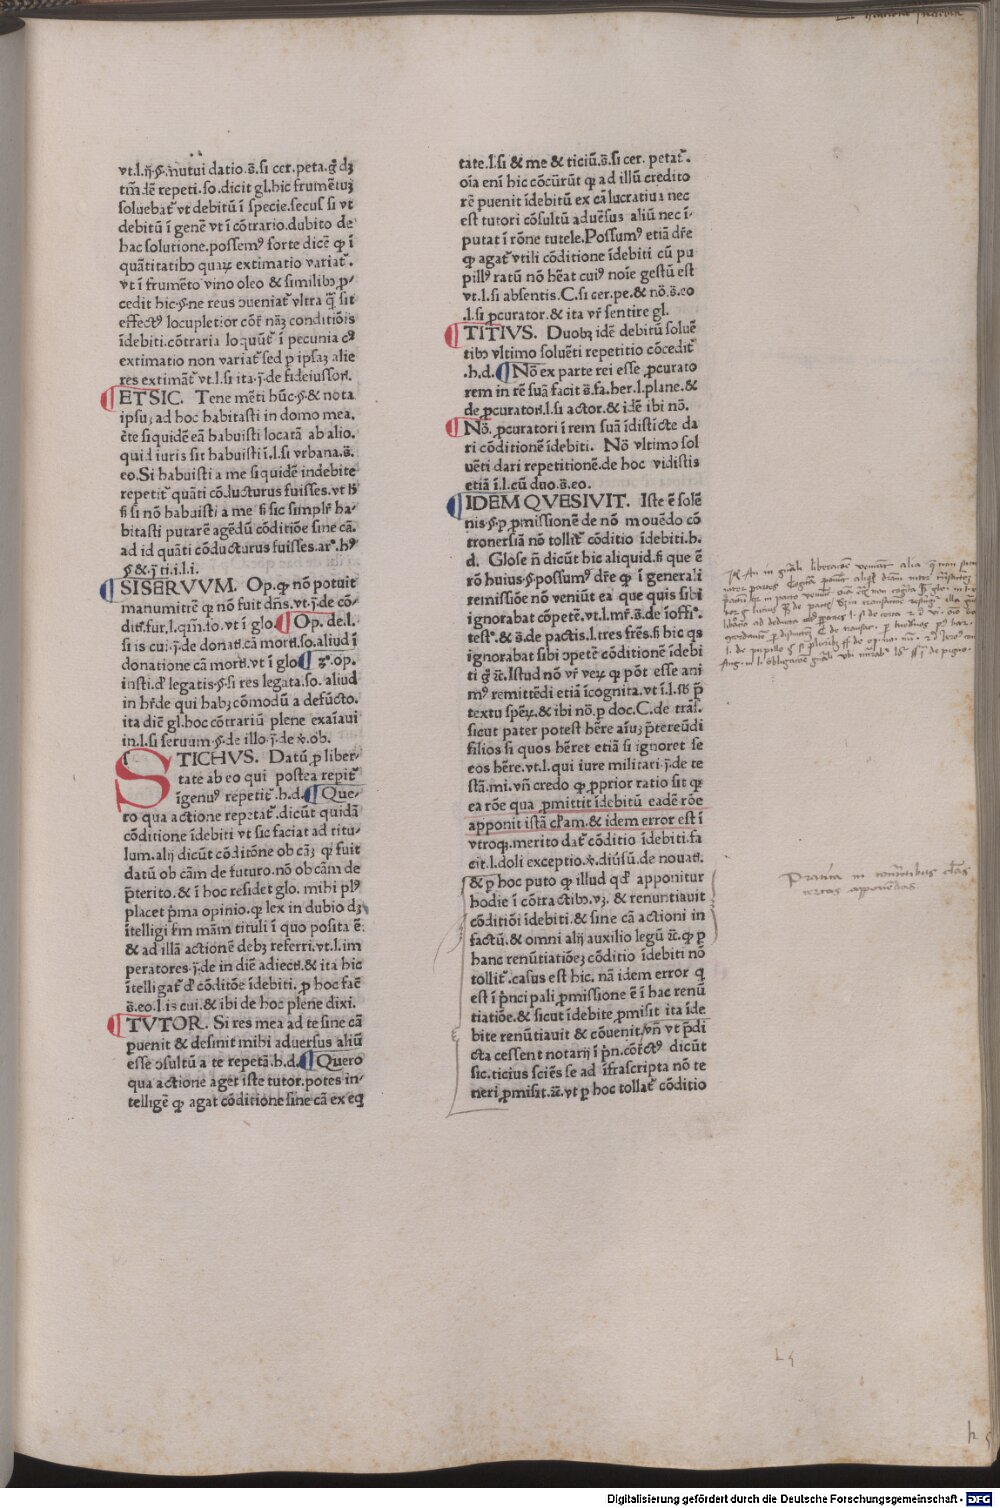 vt.l.ij.§.mutui datio.s̄.si cer.peta.g̊ dꝫ
tm̄dē repeti.so.dicit gl.hic frumētuꝫ
soluebat᷑ vt debitū ī specie.secus si vt
debitū ī genē vt ī cōtrario.dubito de
hac solutione.possemꝰ forte dicē ꝙ ī
quātitatibꝰ quaꝝ extimatio variat᷑.
vt ī frumēto vino oleo & similibꝰ ꝓ-
cedit hic.§.ne reus ↄueniat᷑ vltra q̄ sit
effectꝰ locupletior cōr̄ nāꝫ conditiōis
īdebiti.cōtraria loquūt᷑ ī pecunia cꝰ
extimatio non variat᷑ sed ꝑ ipsaꝫ alie
res extimāt᷑ vt.l.si ita.j̄.de fideiussoꝝ.
ET SIC. Tene mēti hūc.§.& nota
ipsuꝫ ad hoc habitasti in domo mea.
c̄te siquidē eā habuisti locatā ab alio.
quid iuris sit habuisti ī.l.si vrbana.s̄.
eo.Si habuisti a me siquidē indebite
repetit᷑ quāti cōducturus fuisses.vt h̄
s̄i si nō habuisti a me s̄i sic simplr̄ ha-
bitasti putarē agēdū cōditiōe sine cā.
ad id quāti cōducturus fuisses.ar᷑.hꝰ
§ &.j̄ ti.i.l.i.
SI SERVVM. Op.ꝙ nō potuit
manumittē ꝙ nō fuit dn̄s.vt.j̄.de cō-
dit᷑.fur.l.qm̄.so.vt ī glo. Op.de.l.
si is cui.j̄.de donati.cā morti.so.aliud ī
donatione cā morti.vt ī glo .op.
insti.d̄ legatis.§.si res legata.so.aliud
in hr̄de qui habꝫ cōmodū a defūcto.
ita diē gl.hoc cōtrariū plene exaīaui
in.l.si seruum.§.de illo.j̄.de v̇.ob.
STICHVS. Datū ꝓ liber-
tate ab eo qui postea repit᷑
īgenuꝰ repetit᷑.h.d. Que-
ro qua actione repetat᷑.dicūt quidā
cōditione īdebiti vt sic faciat ad titu-
lum.alij dicūt cōditōne ob cāꝫ ꝙ fuit
datū ob cām de futuro.nō ob cām de
p̄terito.& ī hoc residet glo.mihi plꝰ
placet p̄ma opinio.ꝙ lex in dubio dꝫ
ītelligi s̄m mām tituli ī quo posita ē:
& ad illā actionē debꝫ referri.vt.l.im
peratores.j̄.de in diē adiecti.& ita hic
ītelligat᷑ d̄ cōditōe īdebiti.ꝓ hoc facē
s̄.eo.l.is cui.& ibi de hoc plene dixi.
TVTOR. Si res mea ad te sine cā
puenit & desinit mihi aduersus aliū
esse ↄsultū a te repetā.h.d. Quero
qua actione aget iste tutor.potes in-
telligē ꝙ agat cōditione sine cā ex eq
tate.l.si & me & ticiū.s̄.si cer.petat᷑.
oīa enī hic cōcūrūt ꝙ ad illū credito
rē puenit īdebitū ex cā lucratiua nec
est tutori cōsultū aduēsus aliū nec ī-
putat ī rōne tutele.Possumꝰ etiā dr̄e
ꝙ agat᷑ vtili cōditione īdebiti cū pu
pillꝰ ratū nō hēat cuiꝰ noīe gestū est
vt.l.si absentis.C.si cer.pe.& nō.s̄.eo
.l.si ꝓcurator.& ita vr̄ sentire gl.
TITIVS. Duobꝫ idē debitū soluē
tibꝰ vltimo soluēti repetitio cōcedit᷑
.h.d. Nō ex parte rei esse ꝓcurato
rem in rē suā facit s̄.fa.her.l.plane.&
de ꝓcuratoꝝ.l.si actor.& idē ibi nō.
Nō. ꝓcuratori ī rem suā īdisticte da
ri cōditionē īdebiti. Nō vltimo sol
uēti dari repetitionē.de hoc vidistis
etiā ī.l.cū duo.s̄.eo.
IDEM QVESIVIT. Iste ē solē
nis.§.ꝓ ꝓmissionē de nō mouēdo cō
trouersiā nō tollit᷑ cōditio īdebiti.h.
d. Glose n̄ dicūt hic aliquid.s̄i que ē
rō huius.§.possumꝰ dr̄e ꝙ ī generali
remissiōe nō veniūt ea que quis sibi
ignorabat cōpetē.vt.l.mr̄.s̄.de īoffi᷑.
test᷑.& s̄.de pactis.l.tres frēs.s̄i hic qs
ignorabat sibi ↄpetē cōditionē īdebi
ti g̊ ꝛc̄.Istud nō vr̄ veꝝ ꝙ pōt esse ani
mꝰ remittēdi etiā īcognita.vt ī.l.sb̄ p̄
textu spēꝝ.& ibi nō.ꝓ doc.C.de trās.
sicut pater potest hēre aīuꝫ p̄tereūdi
filios si quos hēret etiā si ignoret se
eos hēre.vt.l.qui iure militari.j̄.de te
stā.mi.vn̄ credo ꝙ ꝓprior ratio sit ꝙ
ea rōe qua ꝓmittit īdebitū eadē rōe
apponit istā cl̄am.& idem error est ī
vtroqꝫ.merito dat᷑ cōditio īdebiti.fa
cit.l.doli exceptio.v̇.diūsū.de nouati.
& ꝓ hoc puto ꝙ illud qd̄ apponitur
hodie ī cōtractibꝰ.vꝫ.& renuntiauit
cōditiōi īdebiti.& sine cā actioni in
factū.& omni alij auxilio legū ꝛc̄.ꝙ ꝑ
hanc renūtiatiōeꝫ cōditio īdebiti nō
tollit᷑.casus est hic. nā idem error q̄
est ī p̄ncipali ꝓmissione ē ī hac renū
tiatiōe.& sicut īdebite ꝓmisit ita īde
bite renūtiauit & cōuenit.vn̄ vt p̄di
cta cessent notarij ī p̄n.cōr̄ctꝰ dicūt
sic.ticius sciēs se ad īfrascripta nō te
neri ꝓmisit.ꝛc̄.vt ꝑ hoc tollat᷑ cōditio
Digitalisierung gefördert durch die Deutsche Forschungsgemeinschaft - DFG